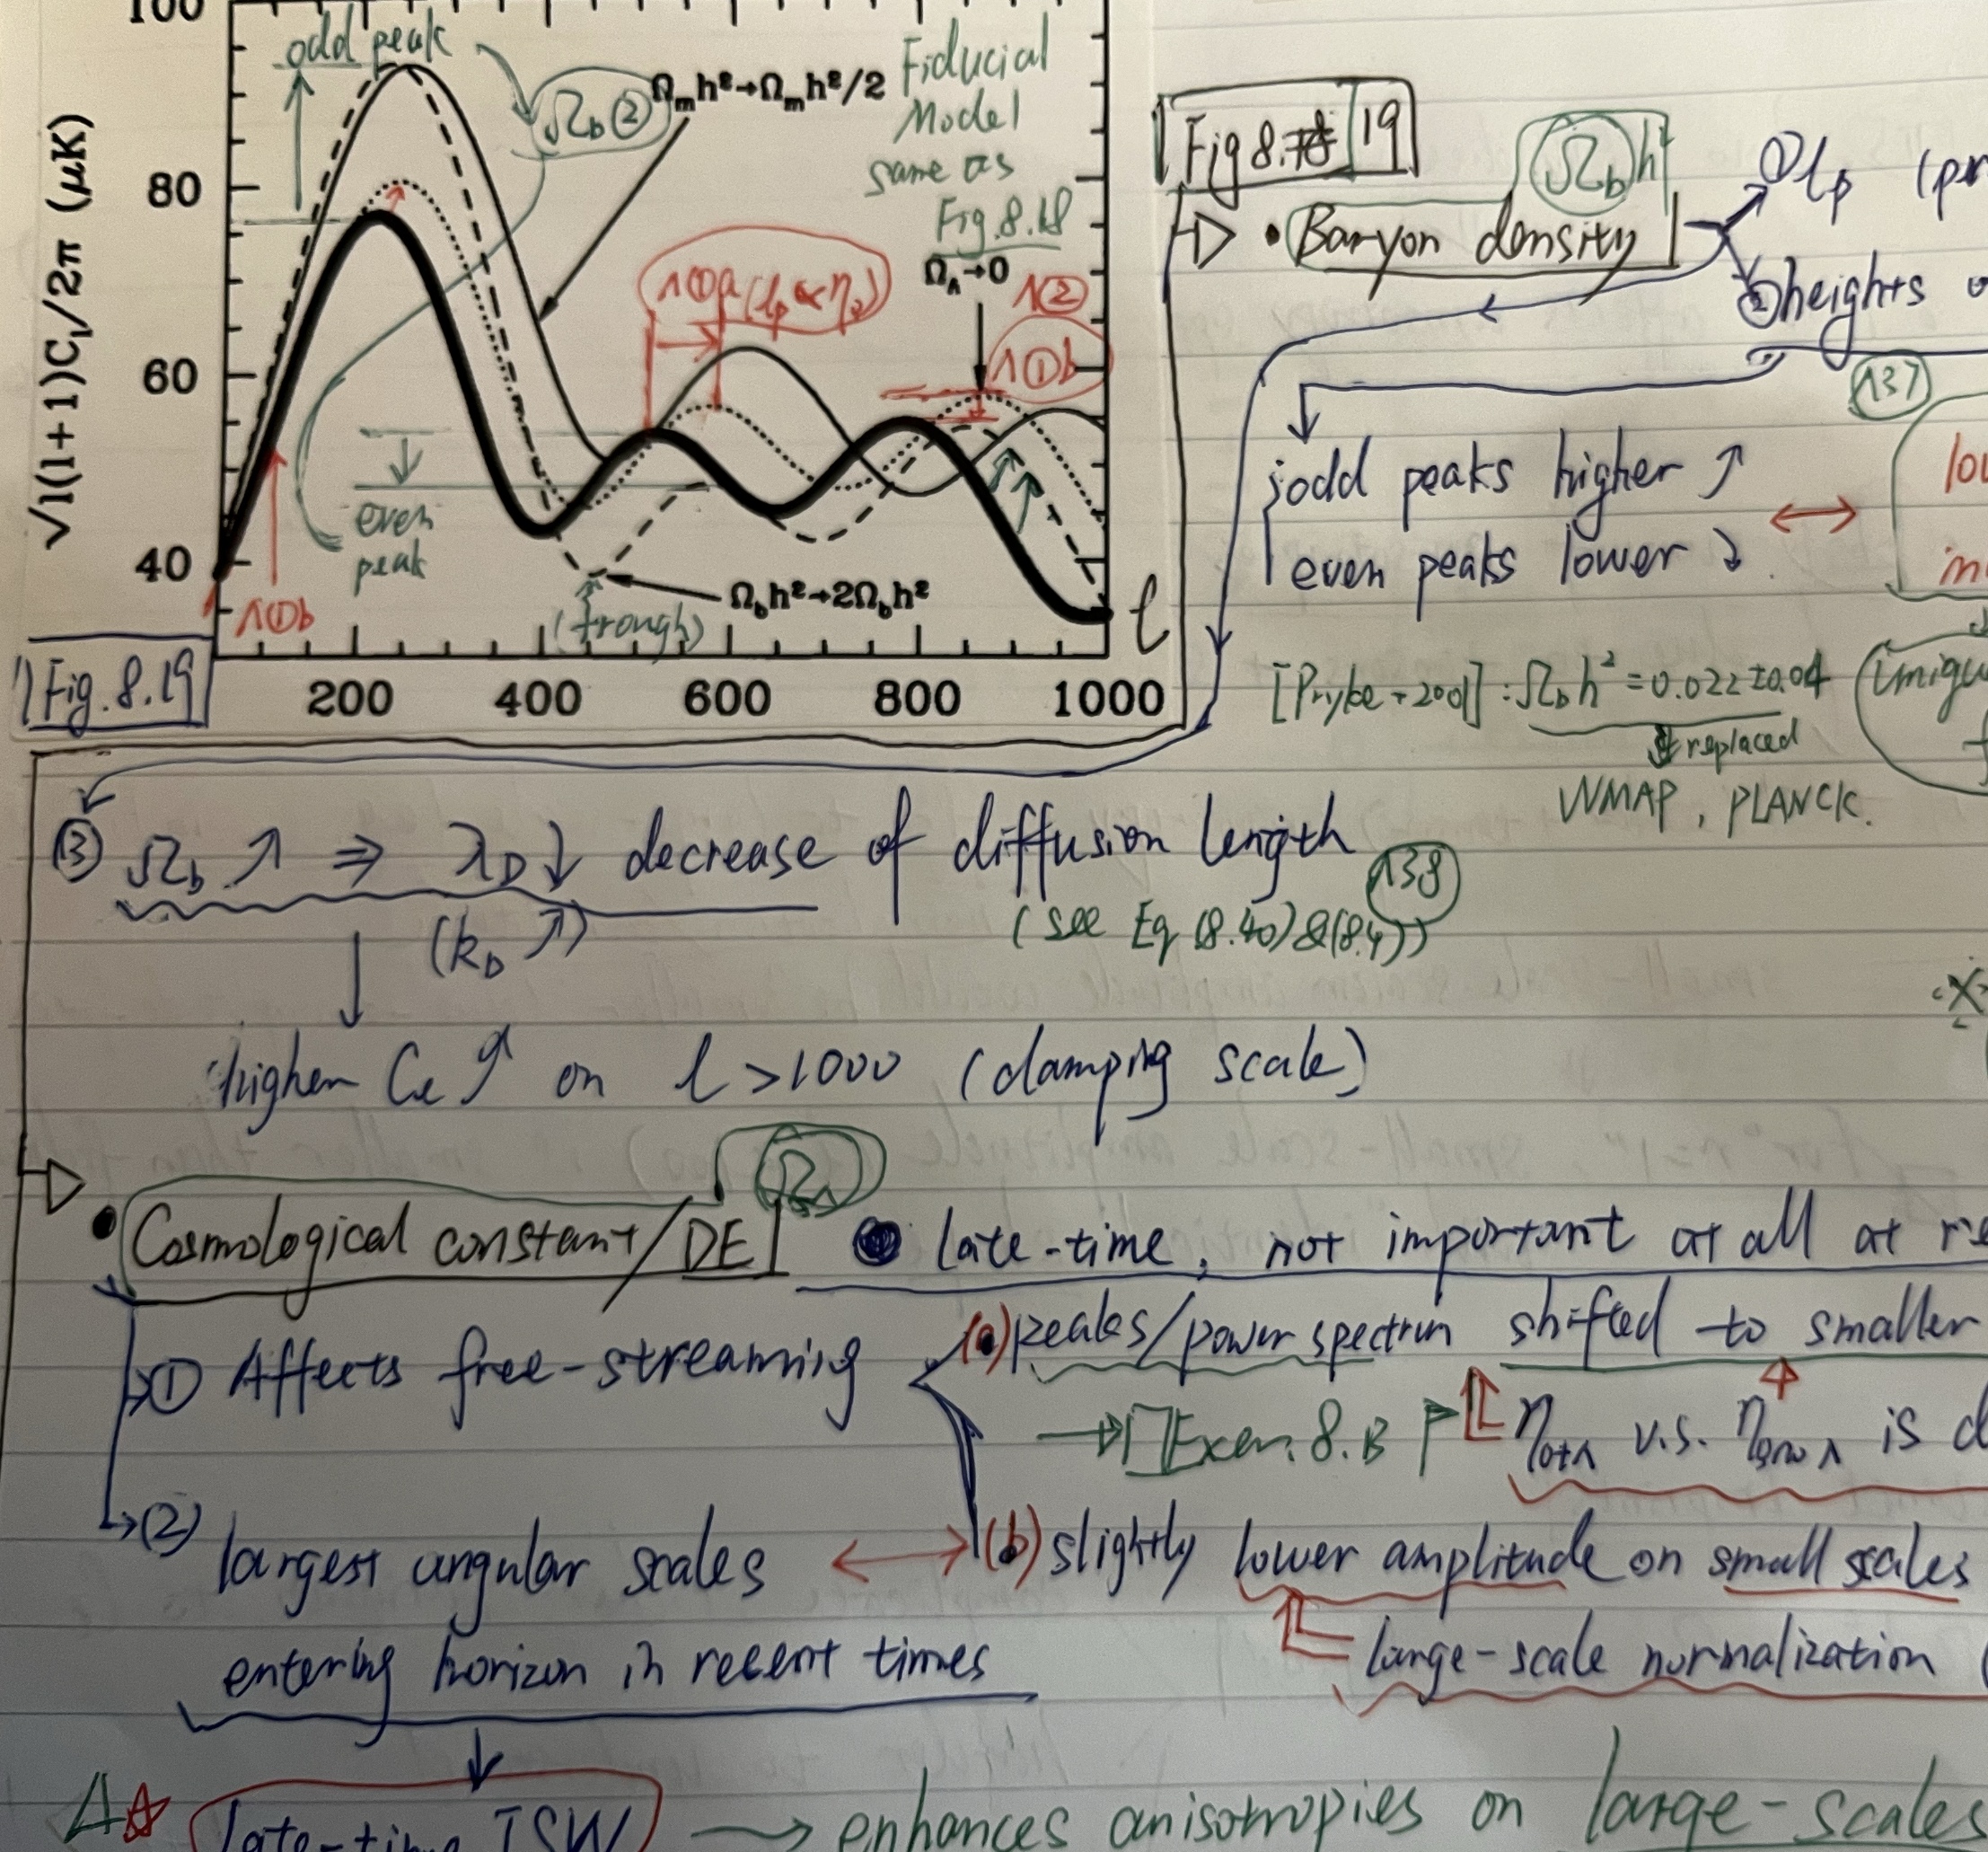 100
odd peak
Ω_b ②
Ω_m h²→Ω_m h²/2
Fiducial
Model
same as
Fig. 8.18
Ω_Λ→0
Λ②
Λ①b
Λ①a (l_p ∝ η_0)
√l(l+1)C_l/2π (μK)
80
60
40
even
peak
Λ①b
(trough)
Ω_b h²→2Ω_b h²
l
200 400 600 800 1000
Fig. 8.19
Fig 8. 19
Ω_b h²
• Baryon density
① l_p
② heights
odd peaks higher ↗
even peaks lower ↘
137
[Pryke+2001] : Ω_b h² = 0.022 ± 0.04
replaced
WMAP, PLANCK.
③ Ω_b ↗ ⇒ λ_D ↓ decrease of diffusion length
(k_D ↗)
138
(see Eq (8.40) & (8.4))
higher C_l ↗ on l > 1000 (damping scale)
Ω_Λ
• Cosmological constant/DE
late-time, not important at all at
① Affects free-streaming
(a) peaks/power spectrum shifted to smaller
→ Exer. 8.B
v.s.
is
(2) largest angular scales ↔ (b) slightly lower amplitude on small scales
entering horizon in recent times
large-scale normalization
late-time ISW → enhances anisotropies on large-scales